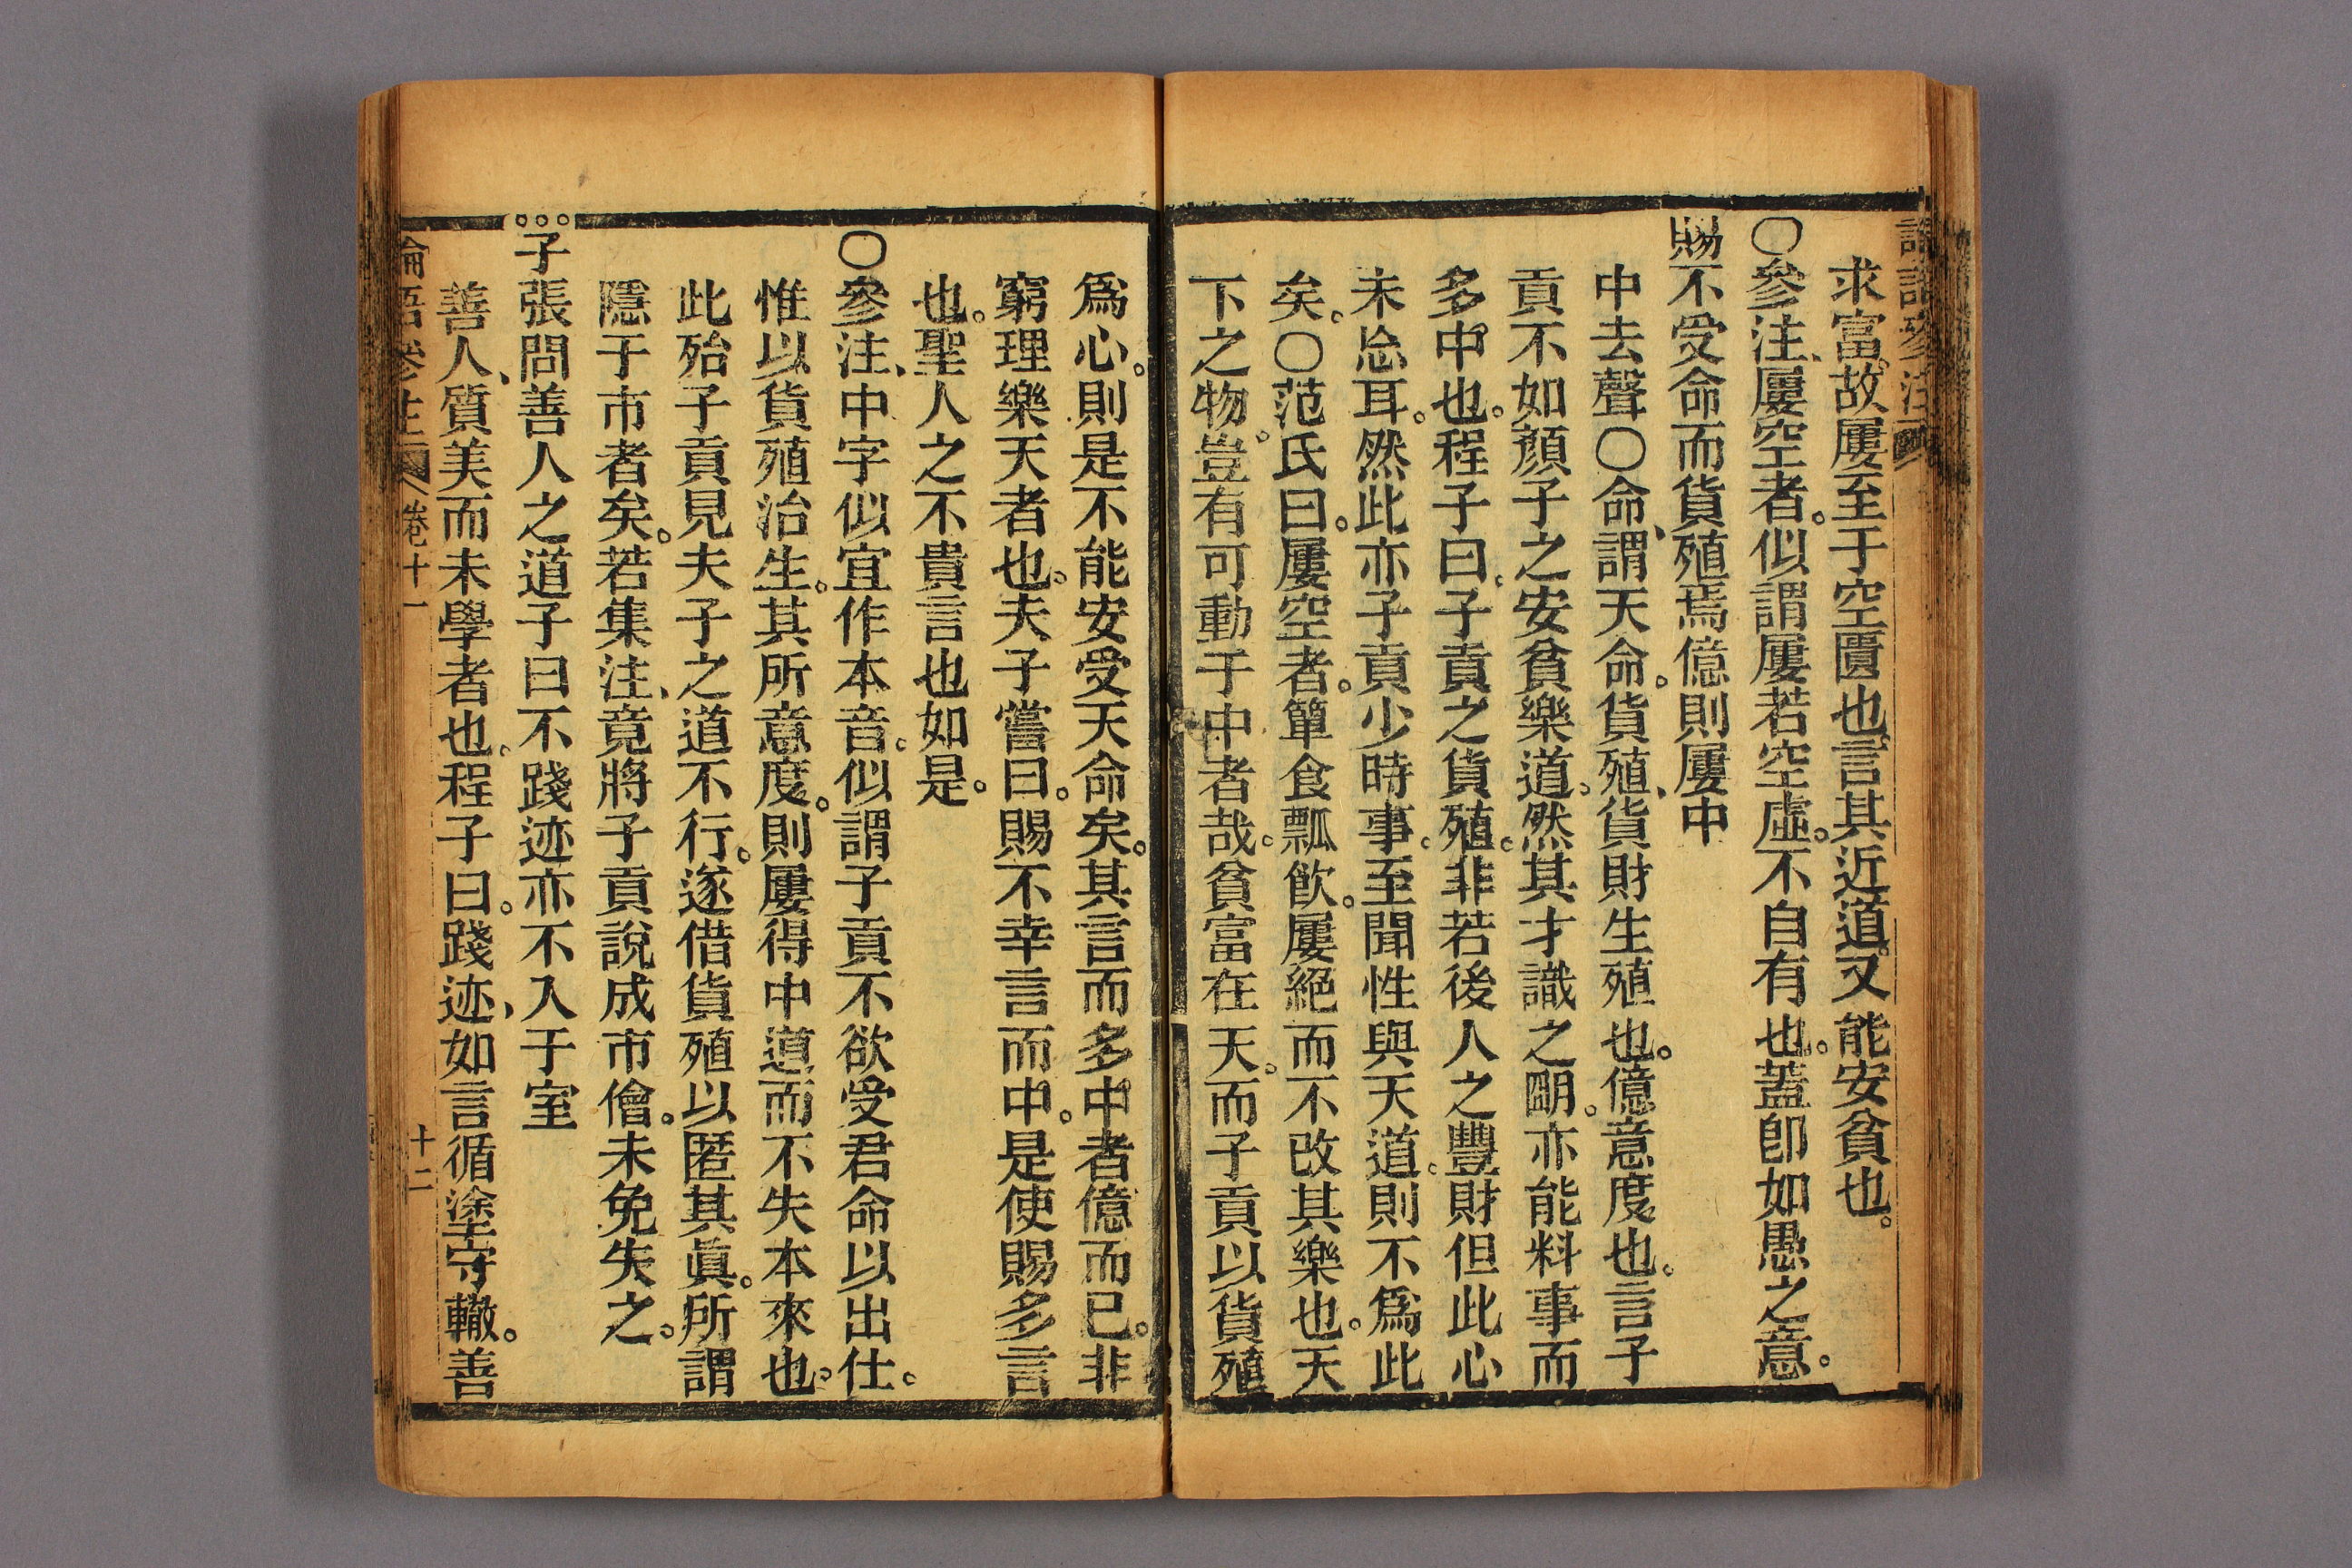 論語參注
求富。故屢至于空匱也。言其近道。又能安貧也。
〇參注、屢空者。似謂屢若空虛。不自有也。蓋卽如愚之意。
賜不受命而貨殖焉億則屢中
中去聲〇命、謂天命。貨殖、貨財生殖也。億意度也。言子
貢不如顏子之安貧樂道。然其才識之明。亦能料事而
多中也。程子曰。子貢之貨殖。非若後人之豐財但此心
未忘耳。然此亦子貢少時事。至聞性與天道。則不爲此
矣。〇范氏曰。屢空者。簞食瓢飮。屢絕而不改其樂也。天
下之物。豈有可動于中者哉。貧富在天。而子貢以貨殖
爲心。則是不能安受天命矣。其言而多中者億而已。非
窮理樂天者也。夫子嘗曰。賜不幸言而中。是使賜多言
也。聖人之不貴言也如是。
〇參注、中字似宜作本音。似謂子貢不欲受君命以出仕。
惟以貨殖治生。其所意度。則屢得中道而不失本來也。
此殆子貢見夫子之道不行。遂借貨殖以匿其眞。所謂
隱于市者矣。若集注、竟將子貢說成市儈。未免失之。
〇〇〇子張問善人之道子曰不踐迹亦不入于室
善人、質美而未學者也。程子曰。踐迹、如言循塗守轍。善
論語參注 卷十一 十二